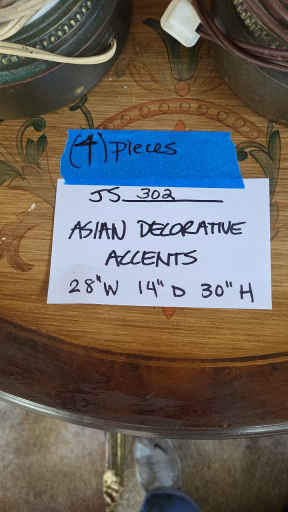 (4) pieces
JS 302
ASIAN DECORATIVE
ACCENTS
28"W 14"D 30"H